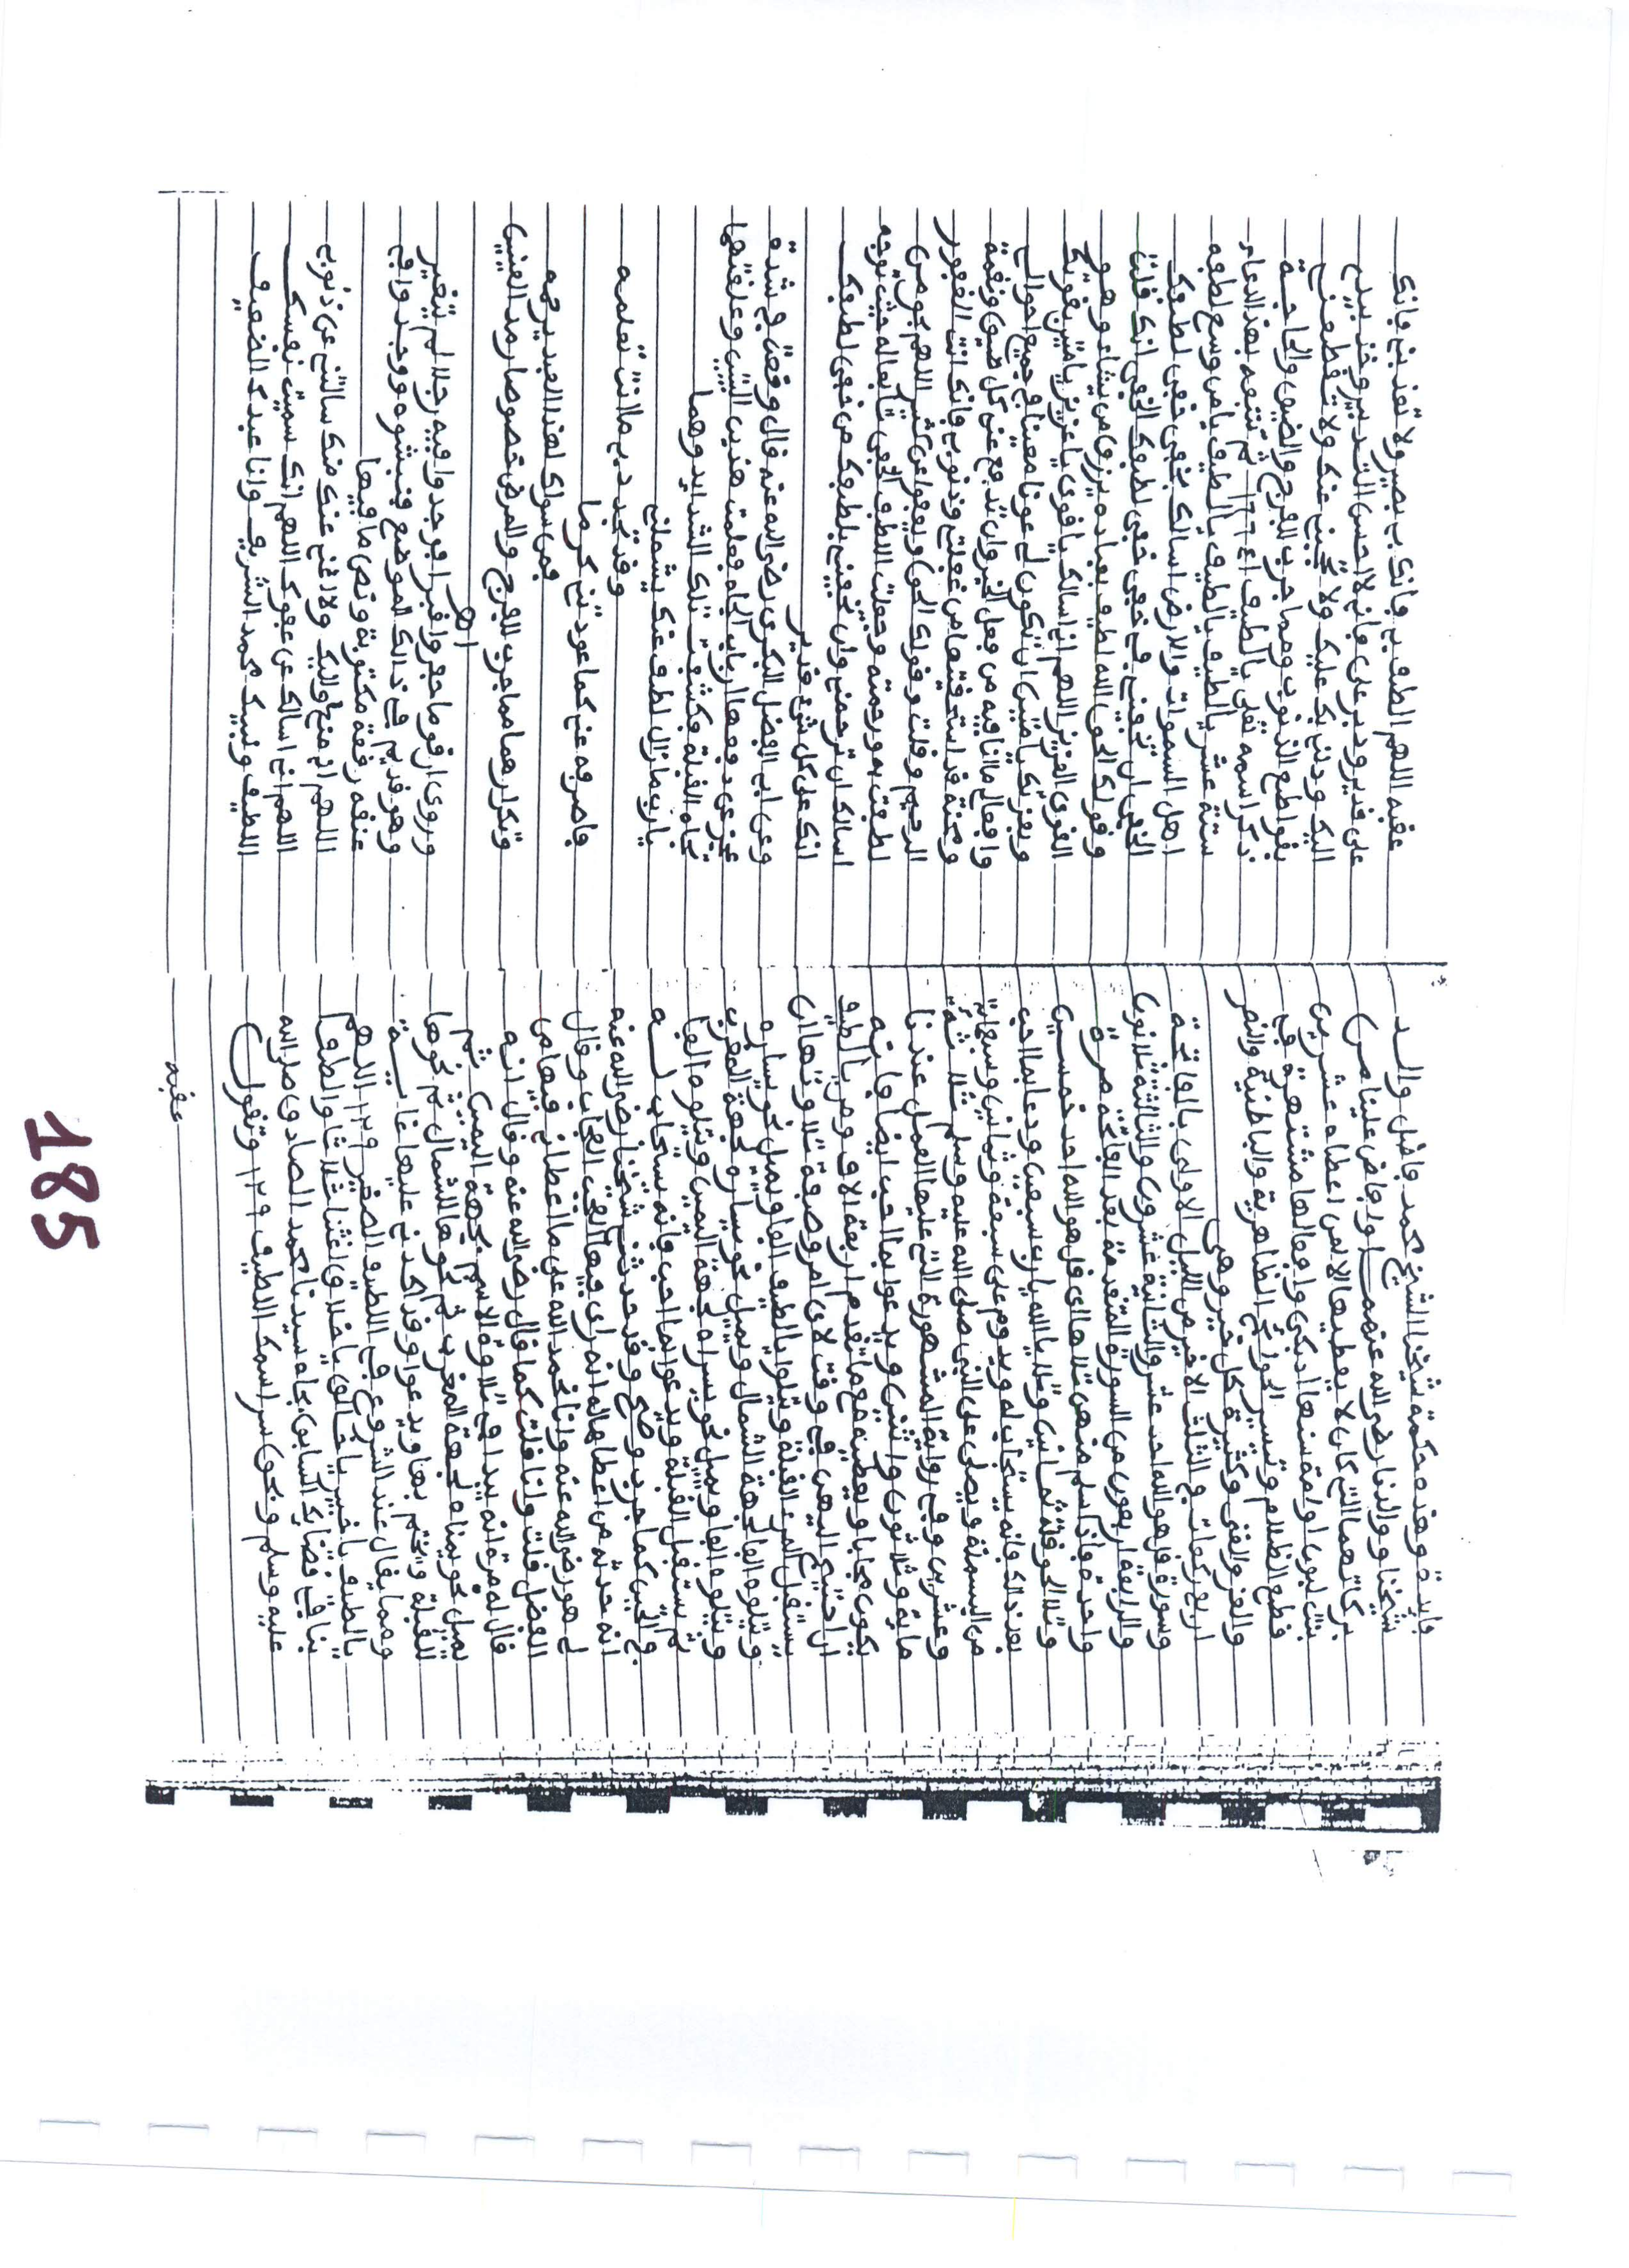 فايدة وهذه حكمة شيخنا الشيخ محمد فاضل والد
شيخنا ووالدنا رضي الله عنهم وافاض علينا من
بركاتهما التي كان لا يعطيها الا لمن اعطاه عشرين
بنت لبون او امة سنها ادبكي وافعالها مشتهرة في
قطع الظلام وتيسير الحوائج الظاهرية والباطنية والنصر
والعز والغنى وكثرة كل خير وهي
اربع ركعات في الثلث الاخير من الليل الاولى بالفاتحة
وسورة قل هو الله احد عشر والثانية عشرون والثالثة ثلاثون
والرابعة اربعون من السورة المتقدمة بعد الفاتحة مرة
واحدة فاذا سلم منهن تلا هااي قل هو الله احد خمسين
وتلا الحوقلة ثمانين وتلا يا الله يا رب سبعين ودعا بما احب
بعد ذالك فانه يستجاب له ويدوم على سبعة وثمانين وسبعمائة
من البسملة ويصلي على النبي صلى الله عليه وسلم ثلاثمائة
وعشرين وفي رواية المشهورة التي عليها العمل عندنا
مائة وثلاثون واثنين ويدعوا بما احب ايضا فانه
يكون مجابا ويعضده مع ما تقدم اربعة الاف من يا لطيف
ان احتيج اليهن في وقت لاي امر وصفة تلاوتها ان
يستقبل المرء القبلة ويتلوا يا لطيف الفا ويميل نحو يساره
ويتلوه الفا لجهة الشمال ويميل نحو يساره لجهة المغرب
ويتلوه الفا ويميل نحو يسراه لجهة اليمين ويتلوه الفا
ثم يستقبل القبلة ويدعوا بما احب فانه يستجاب لــه
في الحين كما جرب وصح وقد حدثني شيخنا رضي الله عنه
انه حدثه من اعطاها له انه راى فيها العجب العجاب وقال
لي هو رضي الله عنه وانا نحمد الله على ما اعطاني فيها من
الفضل قلت وانا قلت كما قال رضي الله عنه وقال انه
قال له مرة انه يبدا في تلاوة الاسم بجهة اليمين ثم
يميل نحو يمناه لجهة المغرب ثم نحوها للشمال ثم نحوها
للقبلة ويختم بها ويدعوا وقد اكدني عليها غايــة
ومما يقال عند الشروع في اللطيف الصغير ١٢٩ اللهم
يا لطيف يا خبير يا خالق يا خلاق اغثنا ثلاثا والطف
بنا في قضائك السابق بجاه سيدنا محمد الصادق صلى الله
عليه وسلم وبحق سر اسمك اللطيف ١٢٩ وتقول
عقبه
عقبه اللهم الطف بي فانك بي بصير ولا تعذبني فانك
علي قدير ودبر علي فاني لا احسن التدبير وخذ بيدي
اليك ودلني بك عليك ولا تحجبني عنك ولا يقطعني
بقواطع الذنوب ومما جرب للفرج والضيق والحاجة
ذكر اسمه تعلى يا لطيف ١٦٦٤١ ثم تتبعه بهذا الدعاء
ستة عشر يا لطيف يا لطيف يا لطيف يا من وسع لطفه
اهل السموات والارض اسالك بخفي خفي لطفك
الخفي ان تخفني في خفي خفي لطفك الخفي انك قلت
وقولك الحق الله لطيف بعباده يرزق من يشاء وهو
القوي العزيز اللهم اني اسالك يا قوي يا عزيز يا متين بقوتك
وبعزتك يا متين ان تكون لي عونا معينا في جميع احوالي
وافعالي ما انا فيه من فعل الخير وان تدفع عني كل ضيق ونقمة
ومحنة قد استحقتها من غفلتي وذنوبي فانك انت الغفور
الرحيم وقلت وقولك الحق ويعفوا عن كثير اللهم بحق من
لطفت به ورحمته وجعلت اللطف الخفي تابعا له حيث توجه
اسالك ان ترحمني وان تخفني بلطفك من خفي لطفك
انك على كل شيء قدير
وعن ابي الفضل البكري رضي الله عنه قال وقعت في شدة
عجز عن دفعها ارباب الجاه فعلمت هذين البيتين وعلقتهما
تجاه القبلة فكشفت تلك الشدايد وهما
يا رب ما زال لطف منك يشملني
وقد تجدد بي ما انت تعلمه
فاصرفه عني كما عودتني كرما
فمن سواك لهذا العبد يرحمه
وتكرارهما مما جرب للفرج والمرض خصوصا رمد العينين
اهـ
وروي ان قوما حفروا قبرا فوجدوا فيه رجلا لم يتغير
وهو قديم في ذالك الموضع فنبشوه ووجدوا في
عنقه رقعة مكتوبة ونص ما فيها
اللهم اني منك واليك ولا غنى عنك منك سالتني عن ذنوبي
اللهم اني اسالك عن عفوك اللهم انك سميت نفسك
اللطيف ونبيك محمد الشريف وانا عبدك الضعيف
185